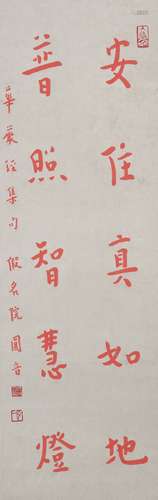 安住真如地
普照智慧燈
華嚴經集句假名院圓音